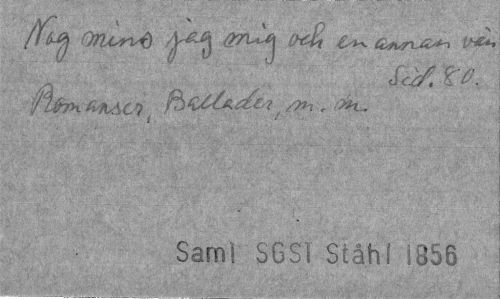 Nog mins jag mig och en annan vän
Sid. 80.
Romanser, Ballader, m. m.
Saml SGS1 Ståhl 1856